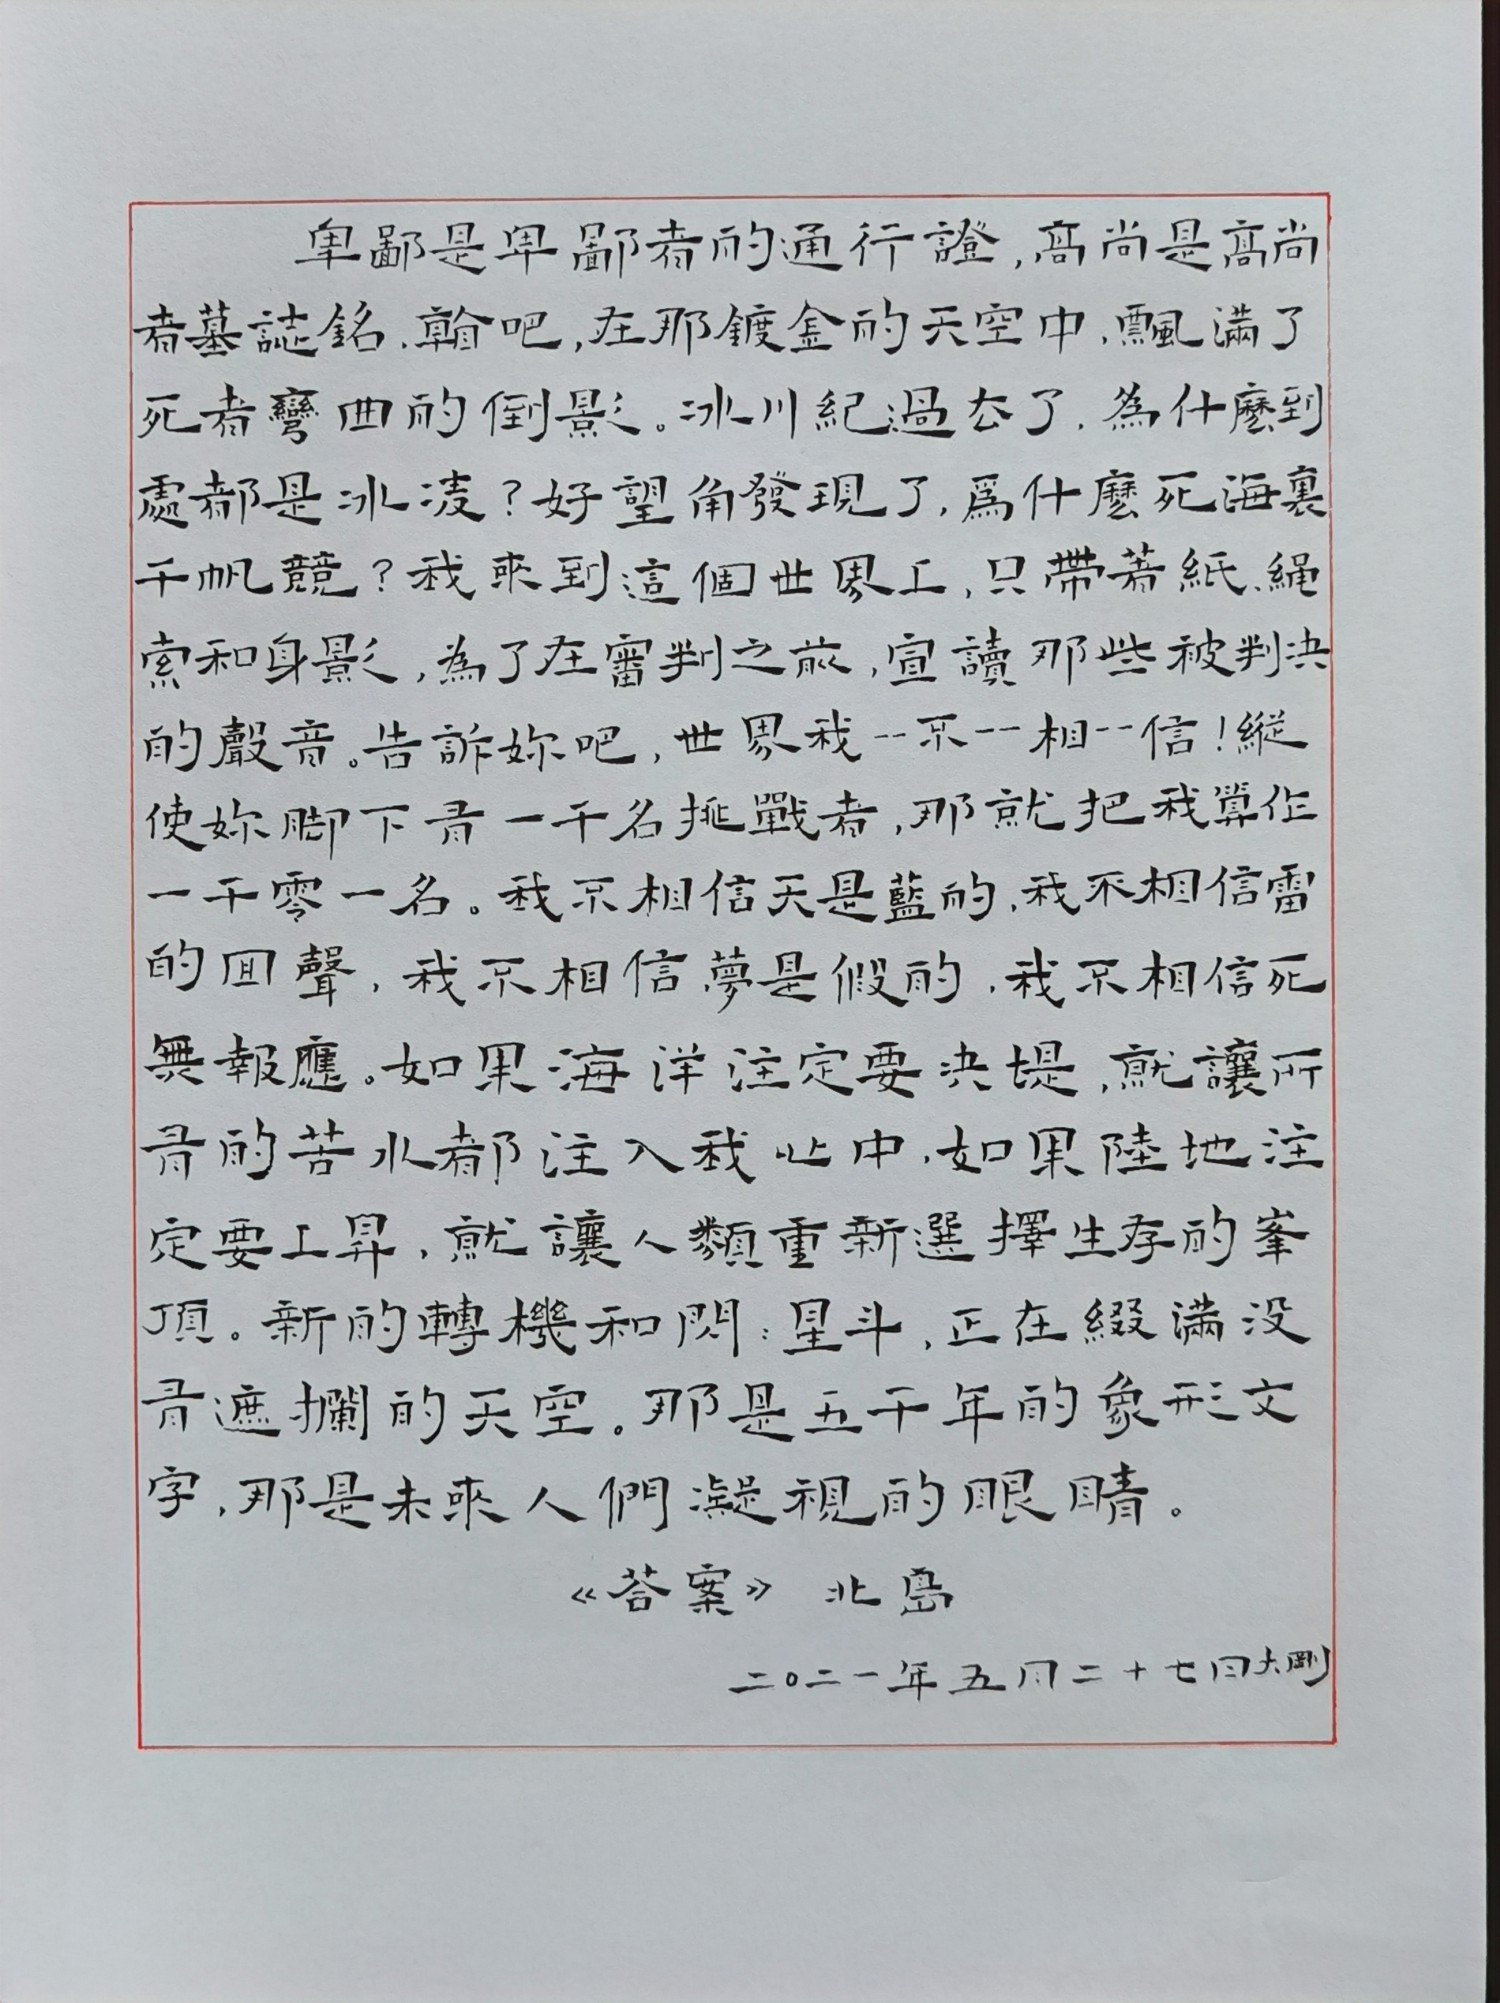 卑鄙是卑鄙者的通行證,高尚是高尚
者墓誌銘.翰吧,在那鍍金的天空中,飄滿了
死者彎曲的倒影。冰川紀過去了,為什麽到
處都是冰凌?好望角發現了,爲什麽死海裏
千帆競?我來到這個世界上,只帶著紙、繩
索和身影,為了在審判之前,宣讀那些被判決
的聲音。告訴妳吧,世界我--不--相--信!縱
使妳脚下有一千名挑戰者,那就把我算作
一千零一名。我不相信天是藍的,我不相信雷
的回聲,我不相信夢是假的,我不相信死
無報應。如果海洋注定要決堤,就讓所
有的苦水都注入我心中,如果陸地注
定要上昇,就讓人類重新選擇生存的峯
頂。新的轉機和閃:星斗,正在綴滿没
有遮攔的天空。那是五千年的象形文
字,那是未來人們凝視的眼睛。
《荅案》 北島
二〇二一年五月二十七日大剛